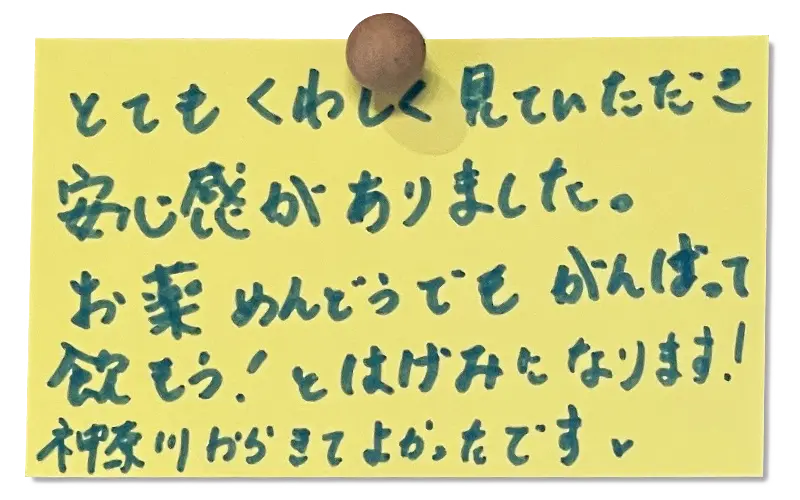 とてもくわしく見ていただき
安心感がありました。
お薬めんどうでもがんばって
飲もう!とはげみになります!
神奈川からきてよかったです♥